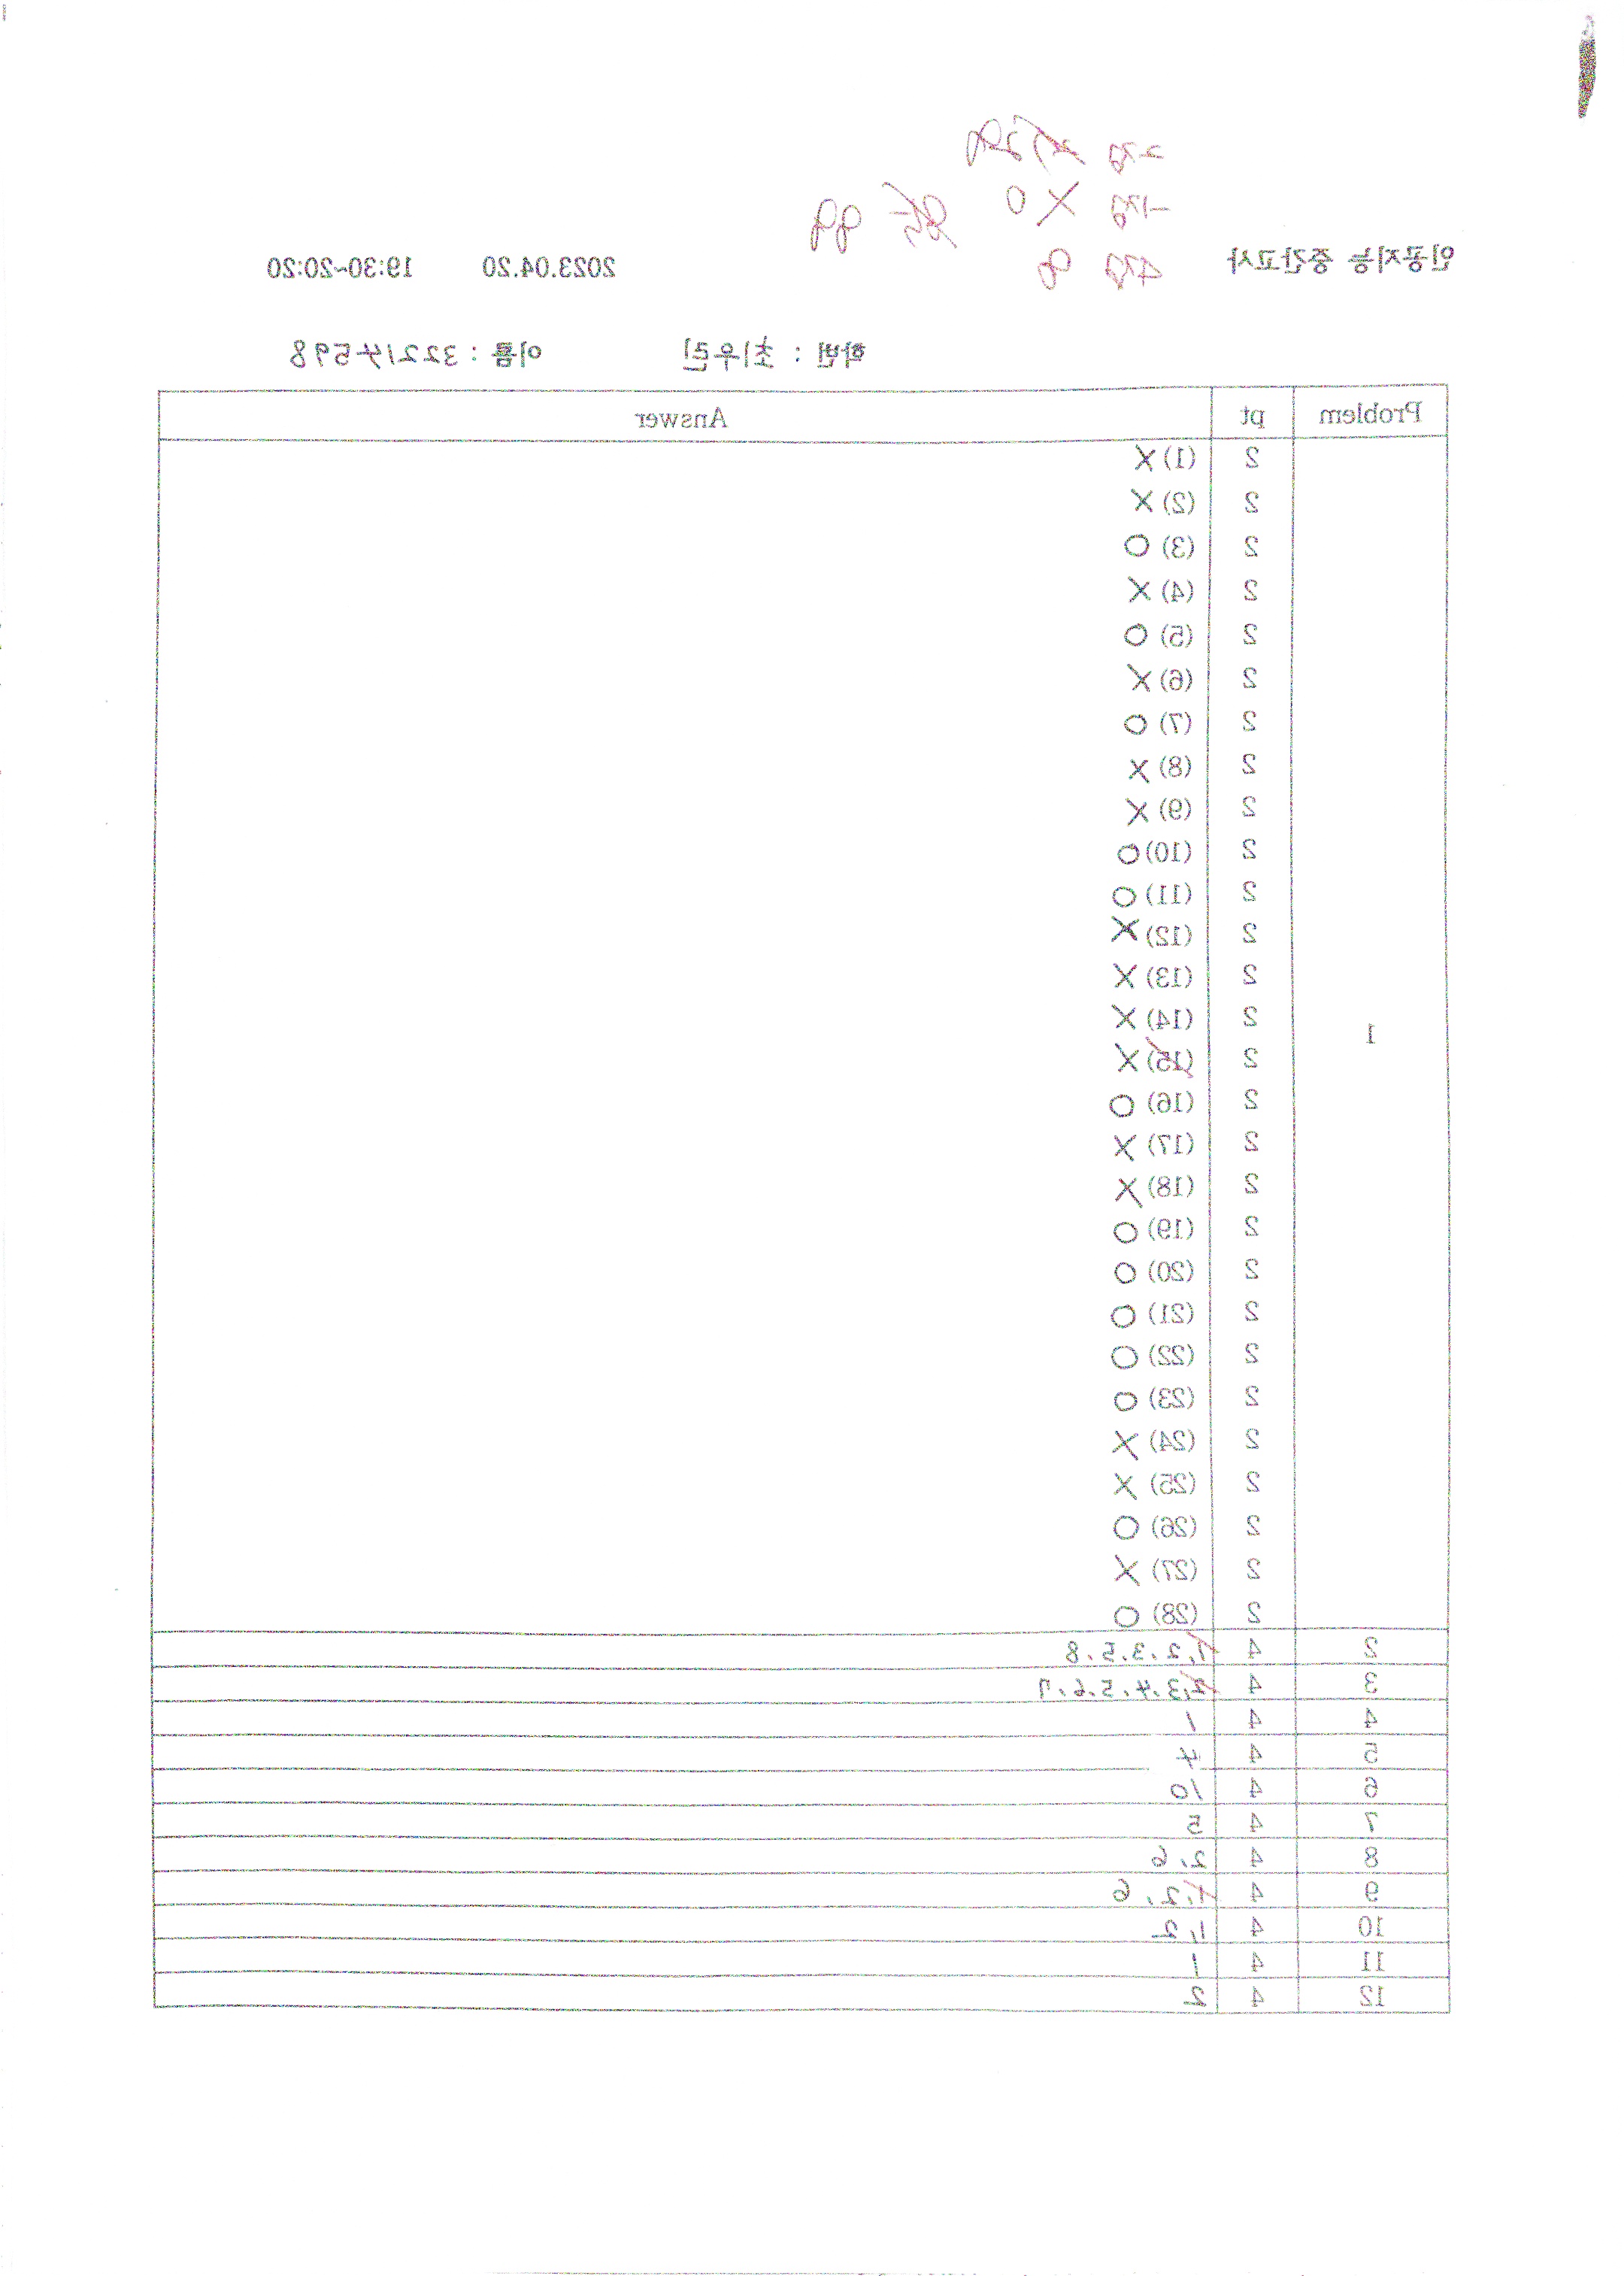 인공지능 중간고사 2023.04.20 19:30~20:20
학번 : 최우린 이름 : 32214598
Problem pt Answer
1
2 (1) X
2 (2) X
2 (3) O
2 (4) X
2 (5) O
2 (6) X
2 (7) O
2 (8) X
2 (9) X
2 (10) O
2 (11) O
2 (12) X
2 (13) X
2 (14) X
2 (15) X
2 (16) O
2 (17) X
2 (18) X
2 (19) O
2 (20) O
2 (21) O
2 (22) O
2 (23) O
2 (24) X
2 (25) X
2 (26) O
2 (27) X
2 (28) O
2 4 1,2.3.5.8
3 4 2,3.4.5.6.7
4 4 1
5 4 4
6 4 10
7 4 5
8 4 2,6
9 4 1,2,6
10 4 1,2
11 4 1
12 4 2